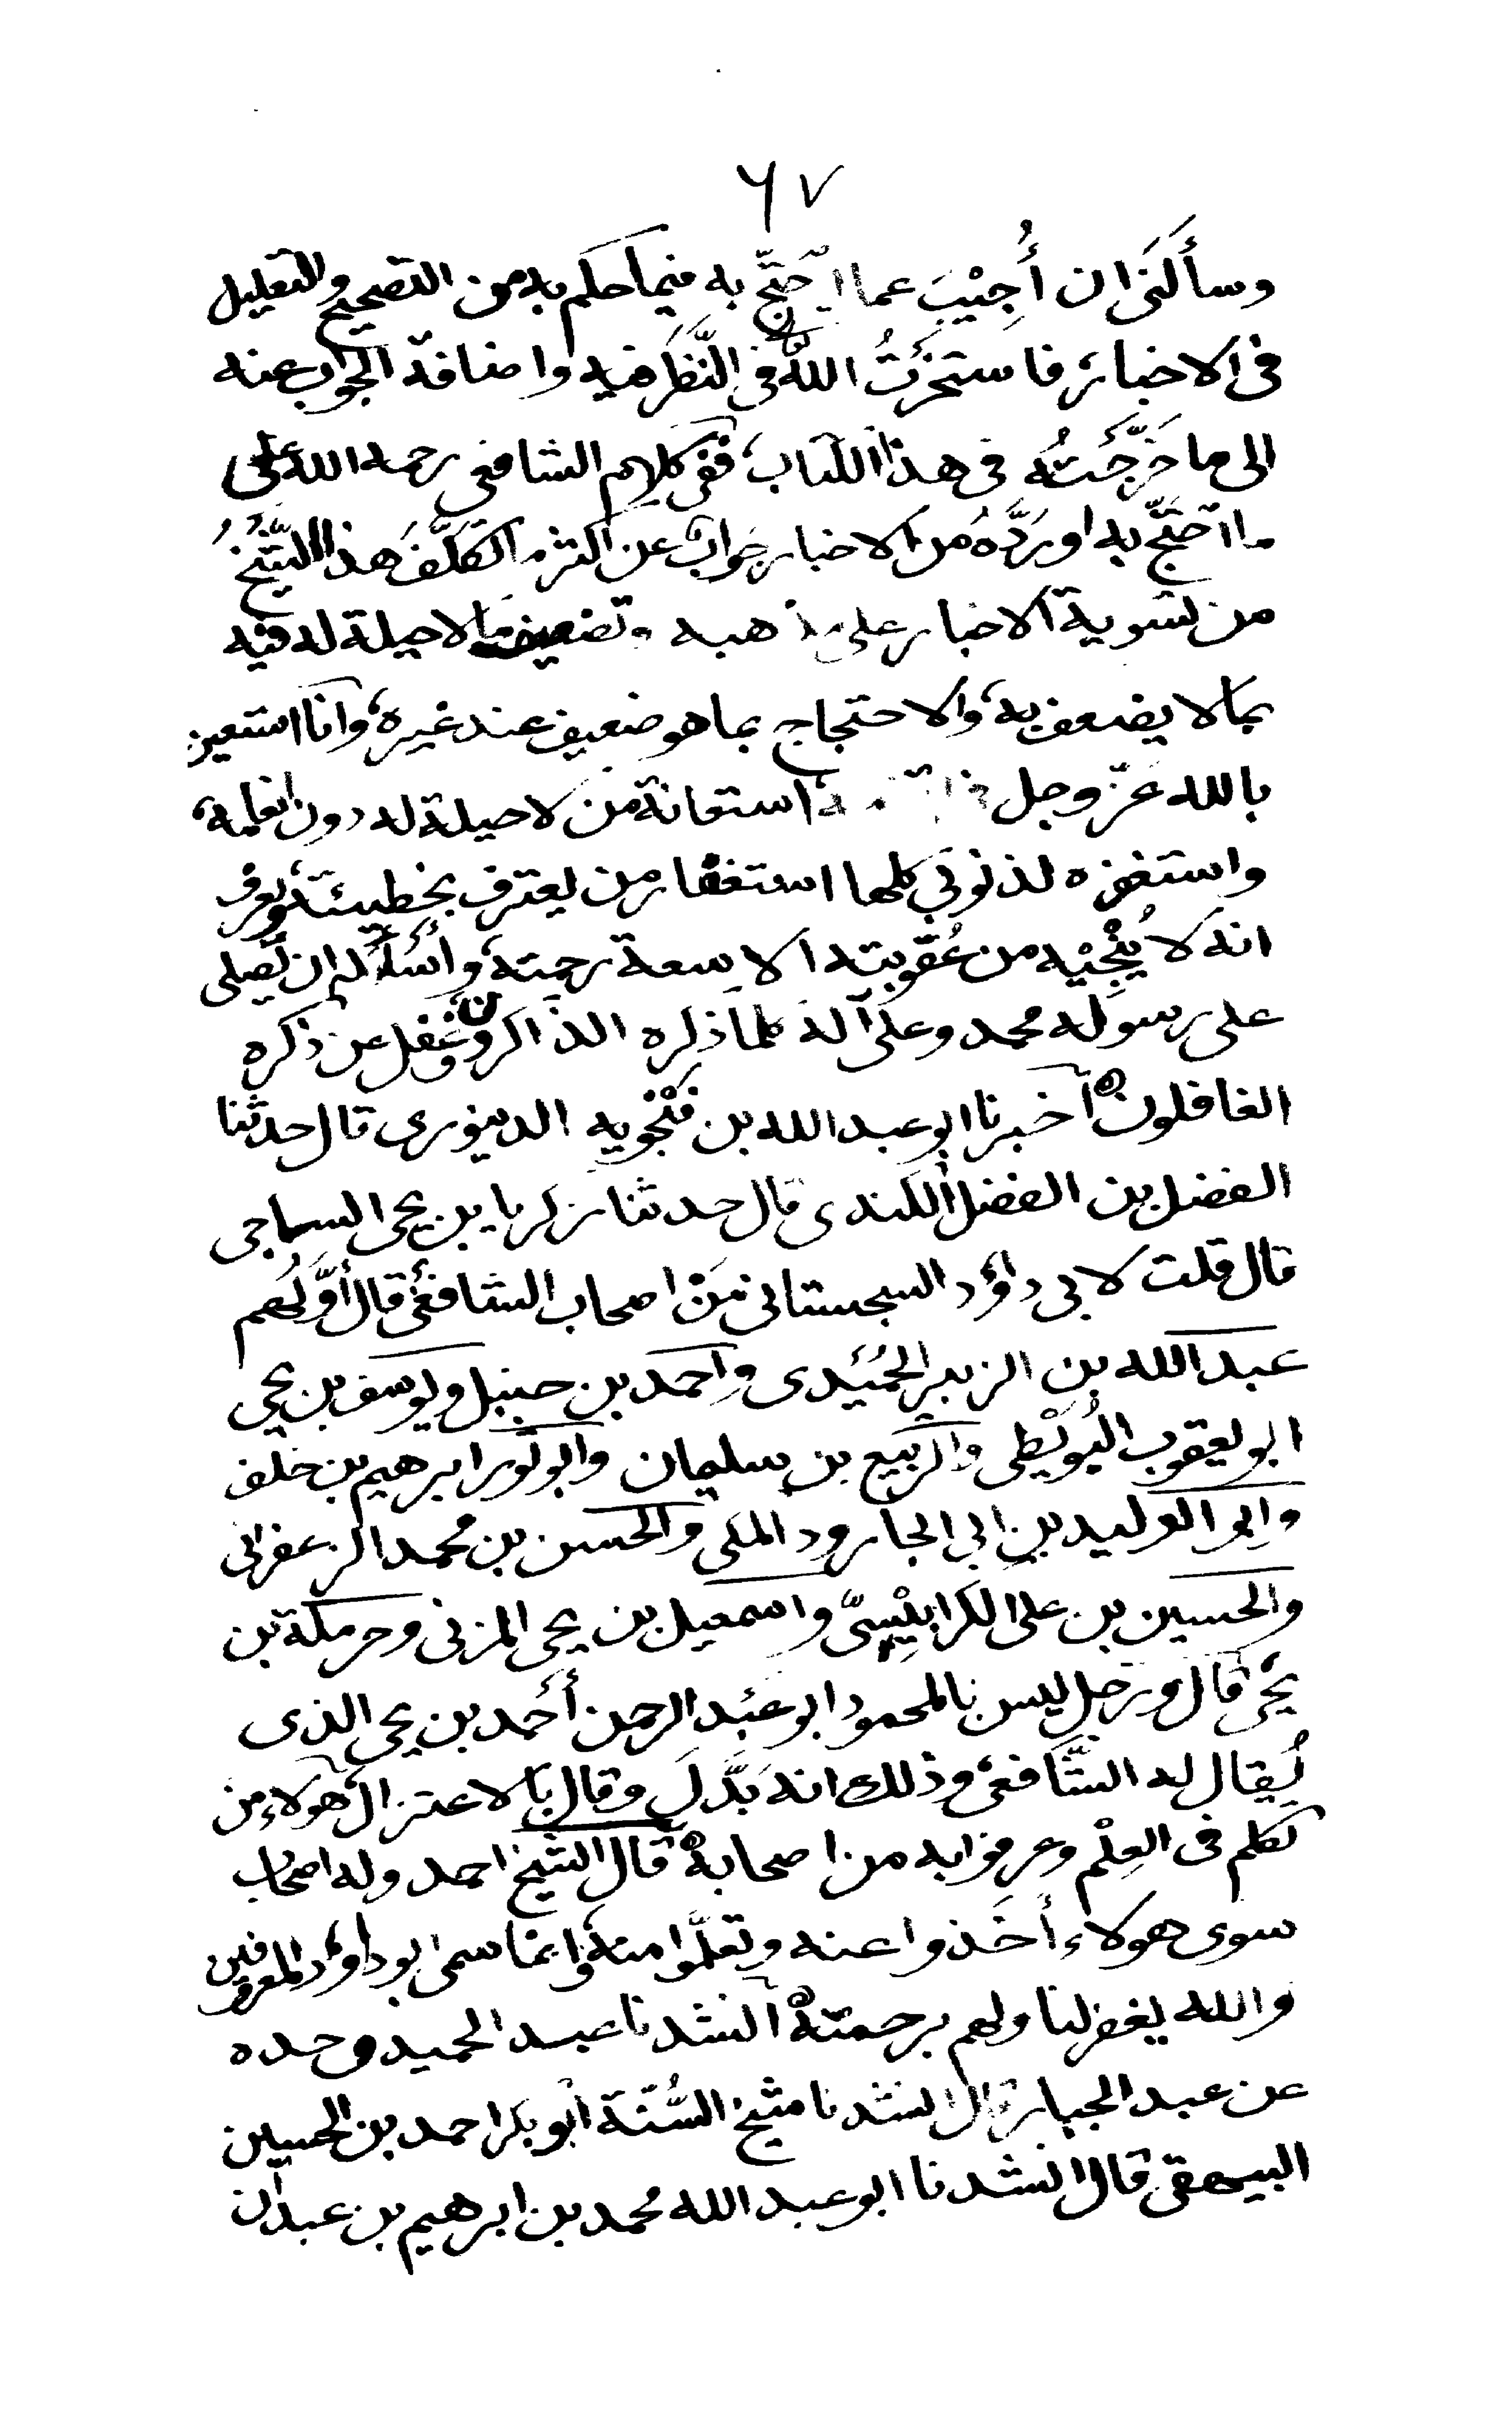 ٦٧
وسألني ان أُجِيْبَ عما احتجّ به فيما حكم به من التصحيح والتعليل
فى الاخبار فاستخرْتُ الله فى النَّظَر فيه واضافة الجواب عنه
الى ما خَرَّجْتُه فى هذا الكتاب، ففى كلام الشافعى رحمه الله على
ما احتجّ به او رَدَّه من الاخبار جواب عن اكثر ما تكلَّفَ هذا الشيخُ
من تسوية الاخبار على مذهبه وتضعيف ما لا حيلة له فيه
بما لا يضعف به، والاحتجاج بما هو ضعيف عند غيره، وانا استعين
بالله عزّ وجل فى استعانة من لا حيلة له دون انعامه،
واستغفره لذنوبى كلها استغفار من يعترف بخطيئته، ويعرف
انه لا يُنْجِيْه من عُقوبته الا سعة رحمته، وأسْأله ان يصلى
على رسوله محمد وعلى آله كلما ذكره الذاكرون وغفل عن ذكره
الغافلون ه اخبرنا ابو عبد الله بن فَنْجويه الدينورى قال حدثنا
الفضل بن الفضل الكندى قال حدثنا زكريا بن يحى الساجى
قال قلت لابى داؤد السجستانى مَنْ اصحاب الشافعىّ قال أوَّلُهم
عبد الله بن الزبير الحُمَيْدى واحمد بن حنبل ويوسف بن يحى
ابو يعقوب البُوَيْطى والربيع بن سليمان وابو ثور ابرهيم بن خلف
وابو الوليد بن ابى الجارود المكى والحسن بن محمد الزعفرانى
والحسين بن على الكرابِيْسِىّ واسمعيل بن يحى المزنى وحرملة بن
يحْى قال ورجل ليس بالمحمود ابو عَبْد الرحمن أحْمد بن يحى الذى
يُقال له الشّافعى وذلك انه بَدَّلَ وقال بالاعتزال، هولاء من
تكلم فى العِلْم وعرفوا به من اصحابه ه قال الشيخ احمد وله اصحاب
سوى هولاء أخَذوا عنه وتعلَّموا منه، وانما سمى ابو داؤد المعروفين
والله يغفر لنا ولهم برحمته ه انشدنا عبد الحميد وحده
عن عبد الجبار قال انشدنا شيخ السُّنّة ابو بكر احمد بن الحسين
البيهقى قال انشدنا ابو عبد الله محمد بن ابرهيم بن عبدان